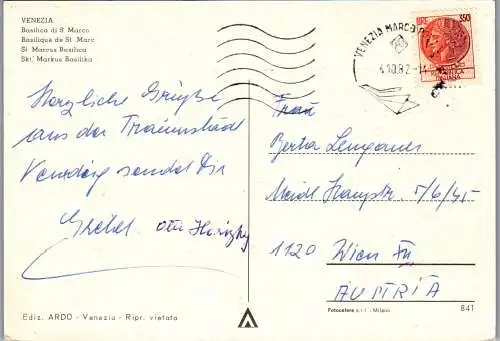 VENEZIA
Basilica di S. Marco
Basilique de St. Marc
St. Marcus Basilica
Skt. Markus Basilika
Herzliche Grüße
aus der Traumstadt
Venedig sendet Dir
Gretel
Otto
VENEZIA MARCO P
4.10.82
LIRE 350
REPUBBLICA
ITALIANA
Frau
Berta
5/6/45
1120 Wien
AUSTRIA
Ediz. ARDO - Venezia - Ripr. vietata
Fotocelere s.r.l. - Milano
841